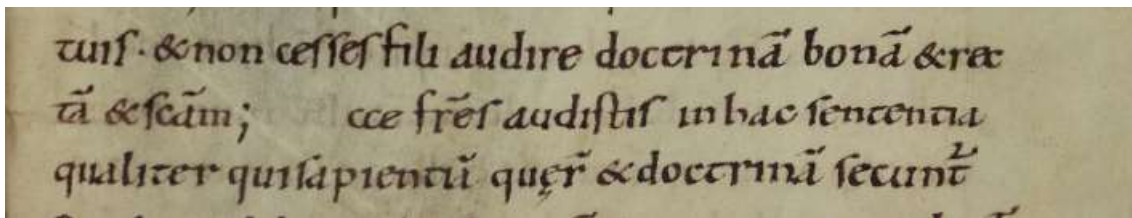 tuis · & non cesses fili audire doctrinā bonā & rec
tā & scām; cce fr̄es audistis in hac sententia
qualiter qui sapientiā quęr̄ & doctrinā secunt̄